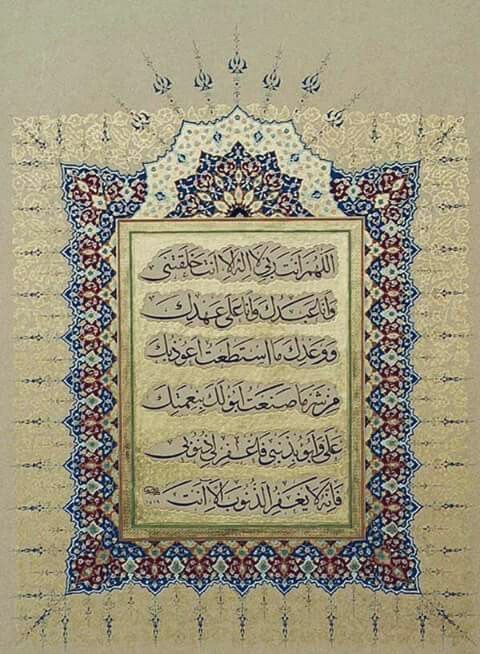 اللهم أنت ربي لا إله إلا أنت خلقتني
وأنا عبدك وأنا على عهدك
ووعدك ما استطعت أعوذ بك
من شر ما صنعت أبوء لك بنعمتك
علي وأبوء بذنبي فاغفر لي ذنوبي
فإنه لا يغفر الذنوب إلا أنت